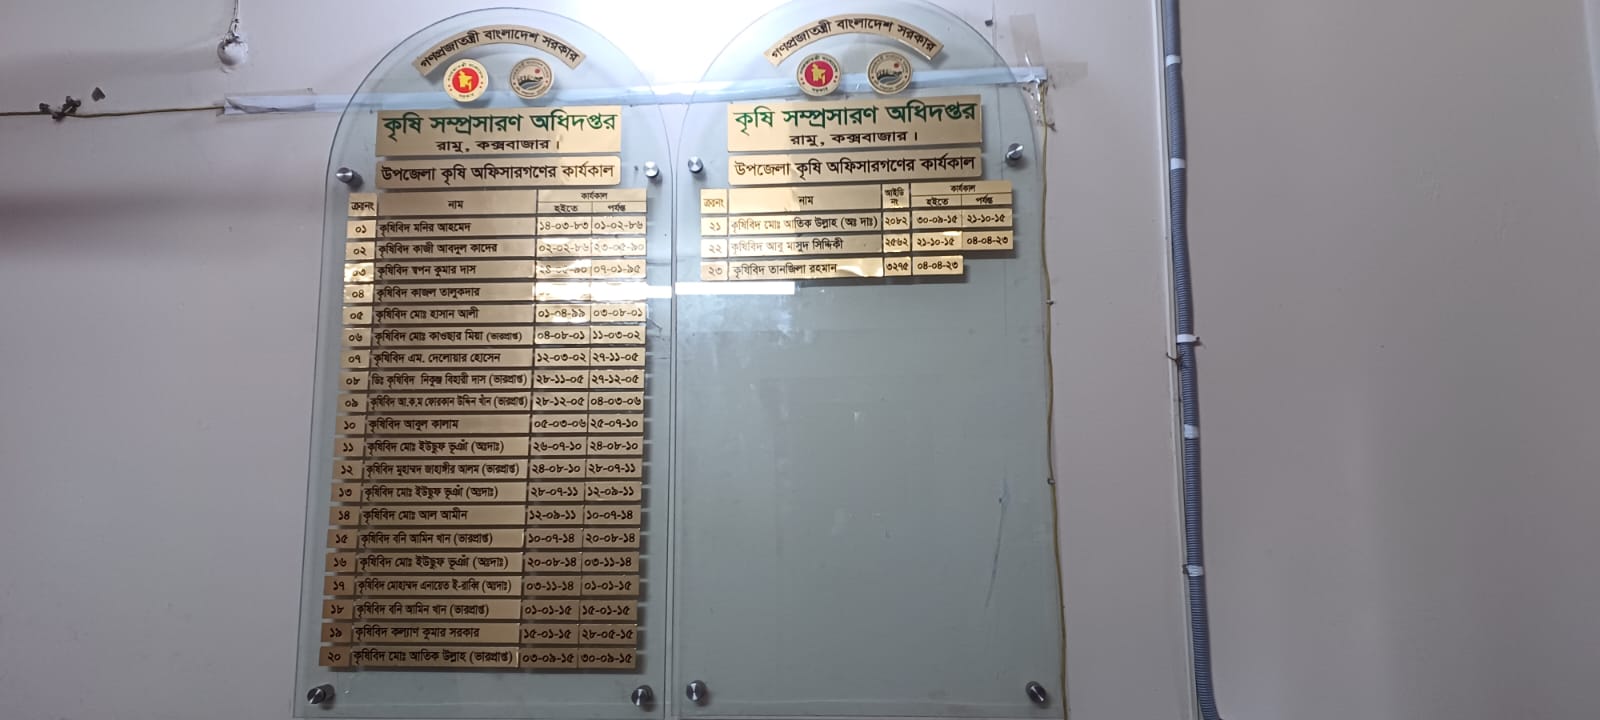 গণপ্রজাতন্ত্রী বাংলাদেশ সরকার
কৃষি সম্প্রসারণ অধিদপ্তর
রামু, কক্সবাজার।
উপজেলা কৃষি অফিসারগণের কার্যকাল
ক্রঃনং নাম কার্যকাল
হইতে পর্যন্ত
০১ কৃষিবিদ মনির আহমেদ ১৪-০৩-৮৩ ০১-০২-৮৬
০২ কৃষিবিদ কাজী আবদুল কাদের ০২-০২-৮৬ ২৩-০৫-৯০
০৩ কৃষিবিদ স্বপন কুমার দাস ২৪-০৫-৯০ ০৭-০১-৯৫
০৪ কৃষিবিদ কাজল তালুকদার
০৫ কৃষিবিদ মোঃ হাসান আলী ০১-০৪-৯৯ ০৩-০৮-০১
০৬ কৃষিবিদ মোঃ কাওছার মিয়া (ভারপ্রাপ্ত) ০৪-০৮-০১ ১১-০৩-০২
০৭ কৃষিবিদ এম. দেলোয়ার হোসেন ১২-০৩-০২ ২৭-১১-০৫
০৮ ডিঃ কৃষিবিদ নিকুঞ্জ বিহারী দাস (ভারপ্রাপ্ত) ২৮-১১-০৫ ২৭-১২-০৫
০৯ কৃষিবিদ আ.ক.ম ফোরকান উদ্দিন খাঁন (ভারপ্রাপ্ত) ২৮-১২-০৫ ০৪-০৩-০৬
১০ কৃষিবিদ আবুল কালাম ০৫-০৩-০৬ ২৫-০৭-১০
১১ কৃষিবিদ মোঃ ইউছুফ ভূঞাঁ (অঃদাঃ) ২৬-০৭-১০ ২৪-০৮-১০
১২ কৃষিবিদ মুহাম্মদ জাহাঙ্গীর আলম (ভারপ্রাপ্ত) ২৪-০৮-১০ ২৮-০৭-১১
১৩ কৃষিবিদ মোঃ ইউছুফ ভূঞাঁ (অঃদাঃ) ২৮-০৭-১১ ১২-০৯-১১
১৪ কৃষিবিদ মোঃ আল আমীন ১২-০৯-১১ ১০-০৭-১৪
১৫ কৃষিবিদ বনি আমিন খান (ভারপ্রাপ্ত) ১০-০৭-১৪ ২০-০৮-১৪
১৬ কৃষিবিদ মোঃ ইউছুফ ভূঞাঁ (অঃদাঃ) ২০-০৮-১৪ ০৩-১১-১৪
১৭ কৃষিবিদ মোহাম্মদ এনায়েত ই-রাব্বি (অঃদাঃ) ০৩-১১-১৪ ০১-০১-১৫
১৮ কৃষিবিদ বনি আমিন খান (ভারপ্রাপ্ত) ০১-০১-১৫ ১৫-০১-১৫
১৯ কৃষিবিদ কল্যাণ কুমার সরকার ১৫-০১-১৫ ২৮-০৫-১৫
২০ কৃষিবিদ মোঃ আতিক উল্লাহ (ভারপ্রাপ্ত) ০৩-০৯-১৫ ৩০-০৯-১৫
গণপ্রজাতন্ত্রী বাংলাদেশ সরকার
কৃষি সম্প্রসারণ অধিদপ্তর
রামু, কক্সবাজার।
উপজেলা কৃষি অফিসারগণের কার্যকাল
ক্রঃনং নাম আইডি নং কার্যকাল
হইতে পর্যন্ত
২১ কৃষিবিদ মোঃ আতিক উল্লাহ (অঃ দাঃ) ২০৮২ ৩০-০৯-১৫ ২১-১০-১৫
২২ কৃষিবিদ আবু মাসুদ সিদ্দিকী ২৫৬২ ২১-১০-১৫ ০৪-০৪-২৩
২৩ কৃষিবিদ তানজিলা রহমান ৩২৭৫ ০৪-০৪-২৩